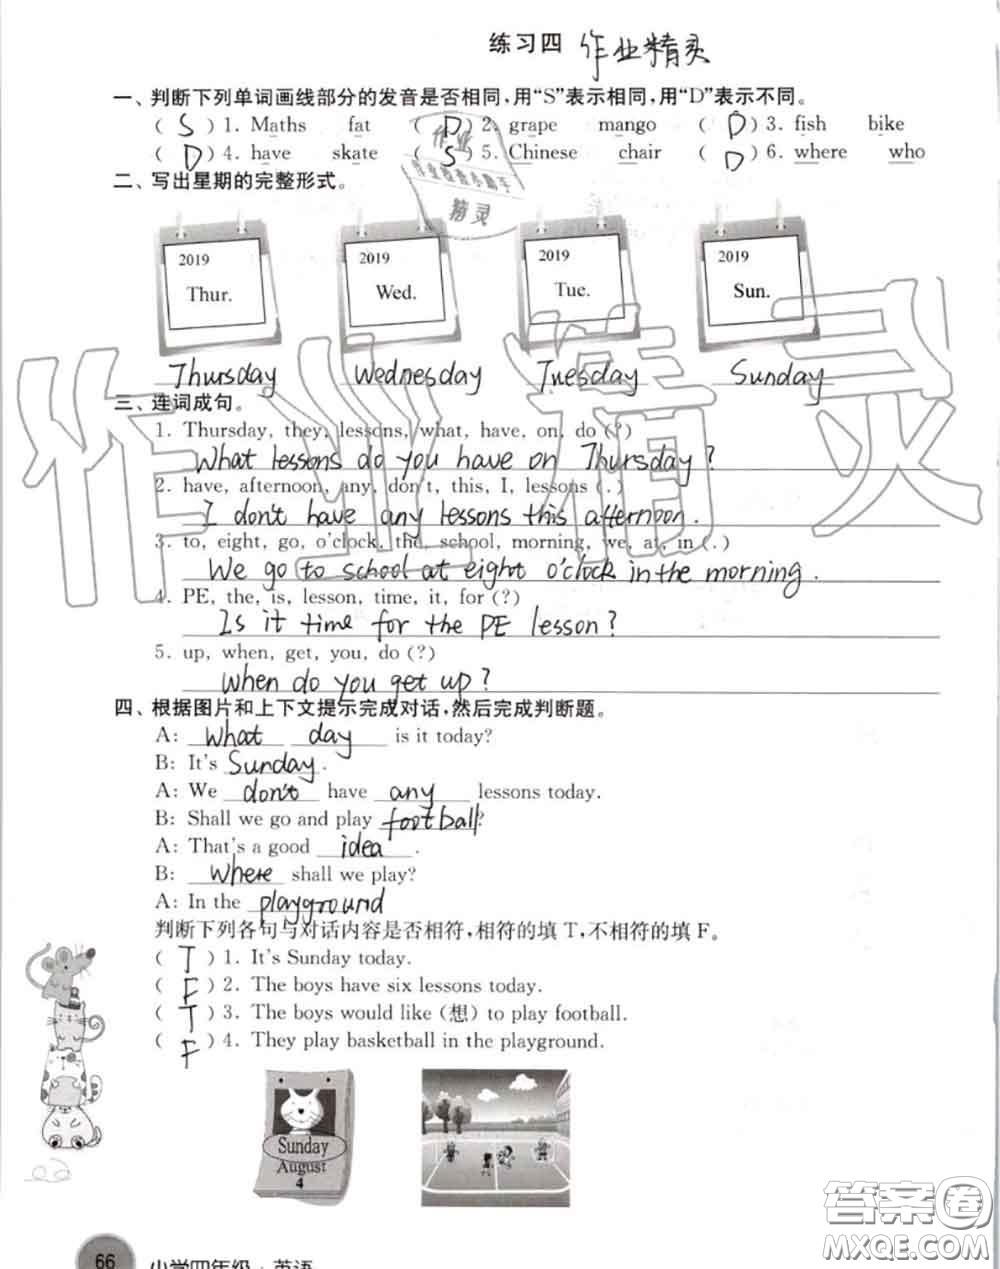 练习四 作业精灵
一、判断下列单词画线部分的发音是否相同,用“S”表示相同,用“D”表示不同。
( S ) 1. Maths fat ( D ) 2. grape mango ( D ) 3. fish bike
( D ) 4. have skate ( S ) 5. Chinese chair ( D ) 6. where who
作业
作业检查小助手
精灵
二、写出星期的完整形式。
2019 2019 2019 2019
Thur. Wed. Tue. Sun.
Thursday Wednesday Tuesday Sunday
作业精灵
三、连词成句。
1. Thursday, they, lessons, what, have, on, do (?)
What lessons do you have on Thursday?
2. have, afternoon, any, don't, this, I, lessons (.)
I don't have any lessons this afternoon.
3. to, eight, go, o'clock, the, school, morning, we, at, in (.)
We go to school at eight o'clock in the morning.
4. PE, the, is, lesson, time, it, for (?)
Is it time for the PE lesson?
5. up, when, get, you, do (?)
When do you get up?
四、根据图片和上下文提示完成对话,然后完成判断题。
A: What day is it today?
B: It's Sunday.
A: We don't have any lessons today.
B: Shall we go and play football?
A: That's a good idea.
B: Where shall we play?
A: In the playground
判断下列各句与对话内容是否相符,相符的填 T,不相符的填 F。
( T ) 1. It's Sunday today.
( F ) 2. The boys have six lessons today.
( T ) 3. The boys would like (想) to play football.
( F ) 4. They play basketball in the playground.
Sunday
August
4
答案卷
MXQE.COM
66 小学四年级·英语